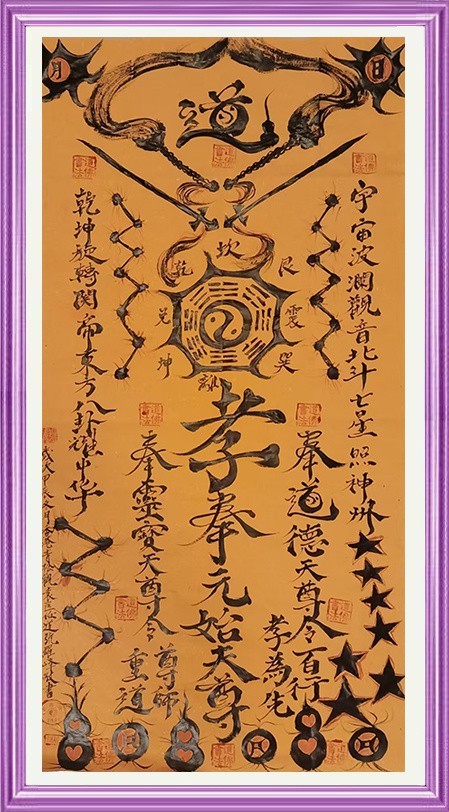 日
月
道
宇宙波瀾觀音北斗七星照神州
乾坤旋轉関帝東方八卦耀中华
乾
坎
艮
震
巽
離
坤
兌
奉道德天尊令百行
孝為先
孝奉元始天尊
奉靈寶天尊令尊師
重道
月
日